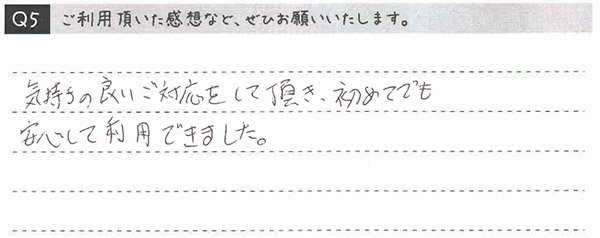 Q5 ご利用頂いた感想など、ぜひお願いいたします。
気持ちの良いご対応をして頂き、初めてでも
安心して利用できました。